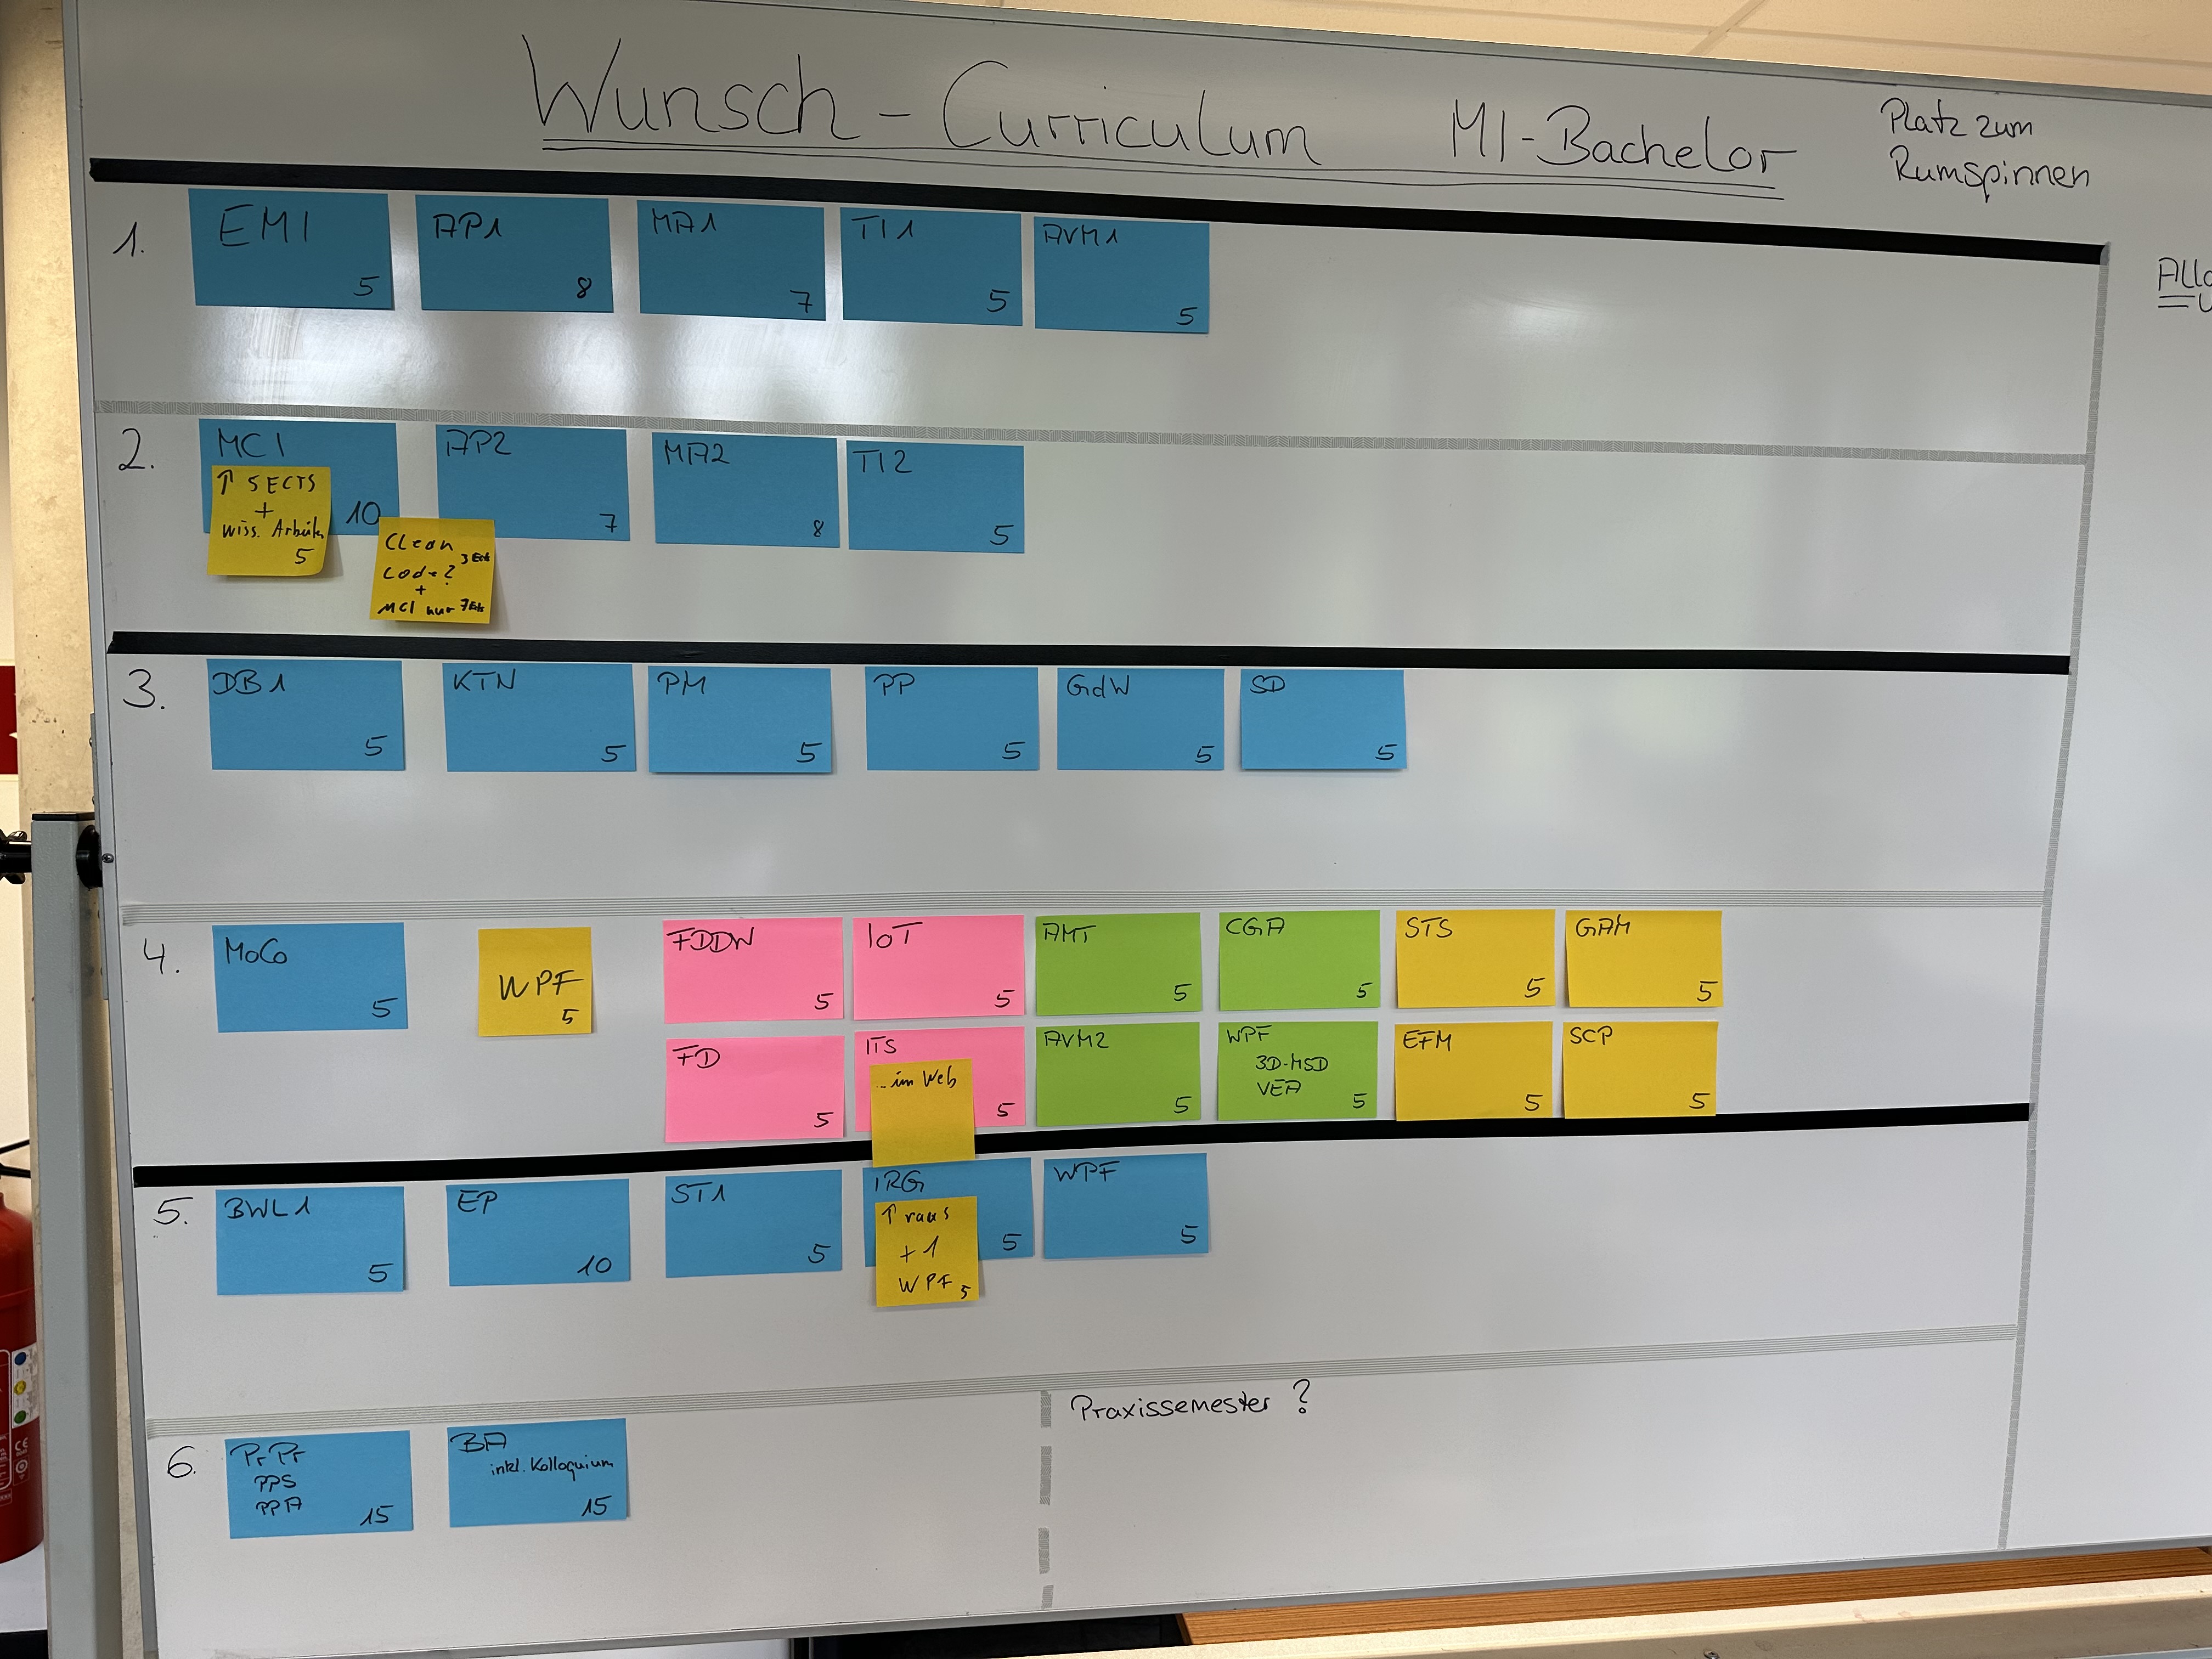 Wunsch-Curriculum MI-Bachelor
Platz zum
Rumspinnen
1.
EMI
5
AP1
8
MA1
7
TI1
5
AVM1
5
2.
MCI
10
↑ 5 ECTS
+
wiss. Arbeiten
5
Clean
Code? 3 Ects
+
MCI nur 7 Ects
AP2
7
MA2
8
TI2
5
3.
DB1
5
KTN
5
PM
5
PP
5
GdW
5
SD
5
4.
MoCo
5
WPF
5
FDDW
5
IoT
5
AMT
5
CGA
5
STS
5
GAM
5
FD
5
ITS
5
...im Web
AVM2
5
WPF
3D-MSD
VEA
5
EFM
5
SCP
5
5.
BWL1
5
EP
10
ST1
5
IRG
5
↑ raus
+1
WPF 5
WPF
5
6.
PrPr
PPS
PPA
15
BA
inkl. Kolloquium
15
Praxissemester ?